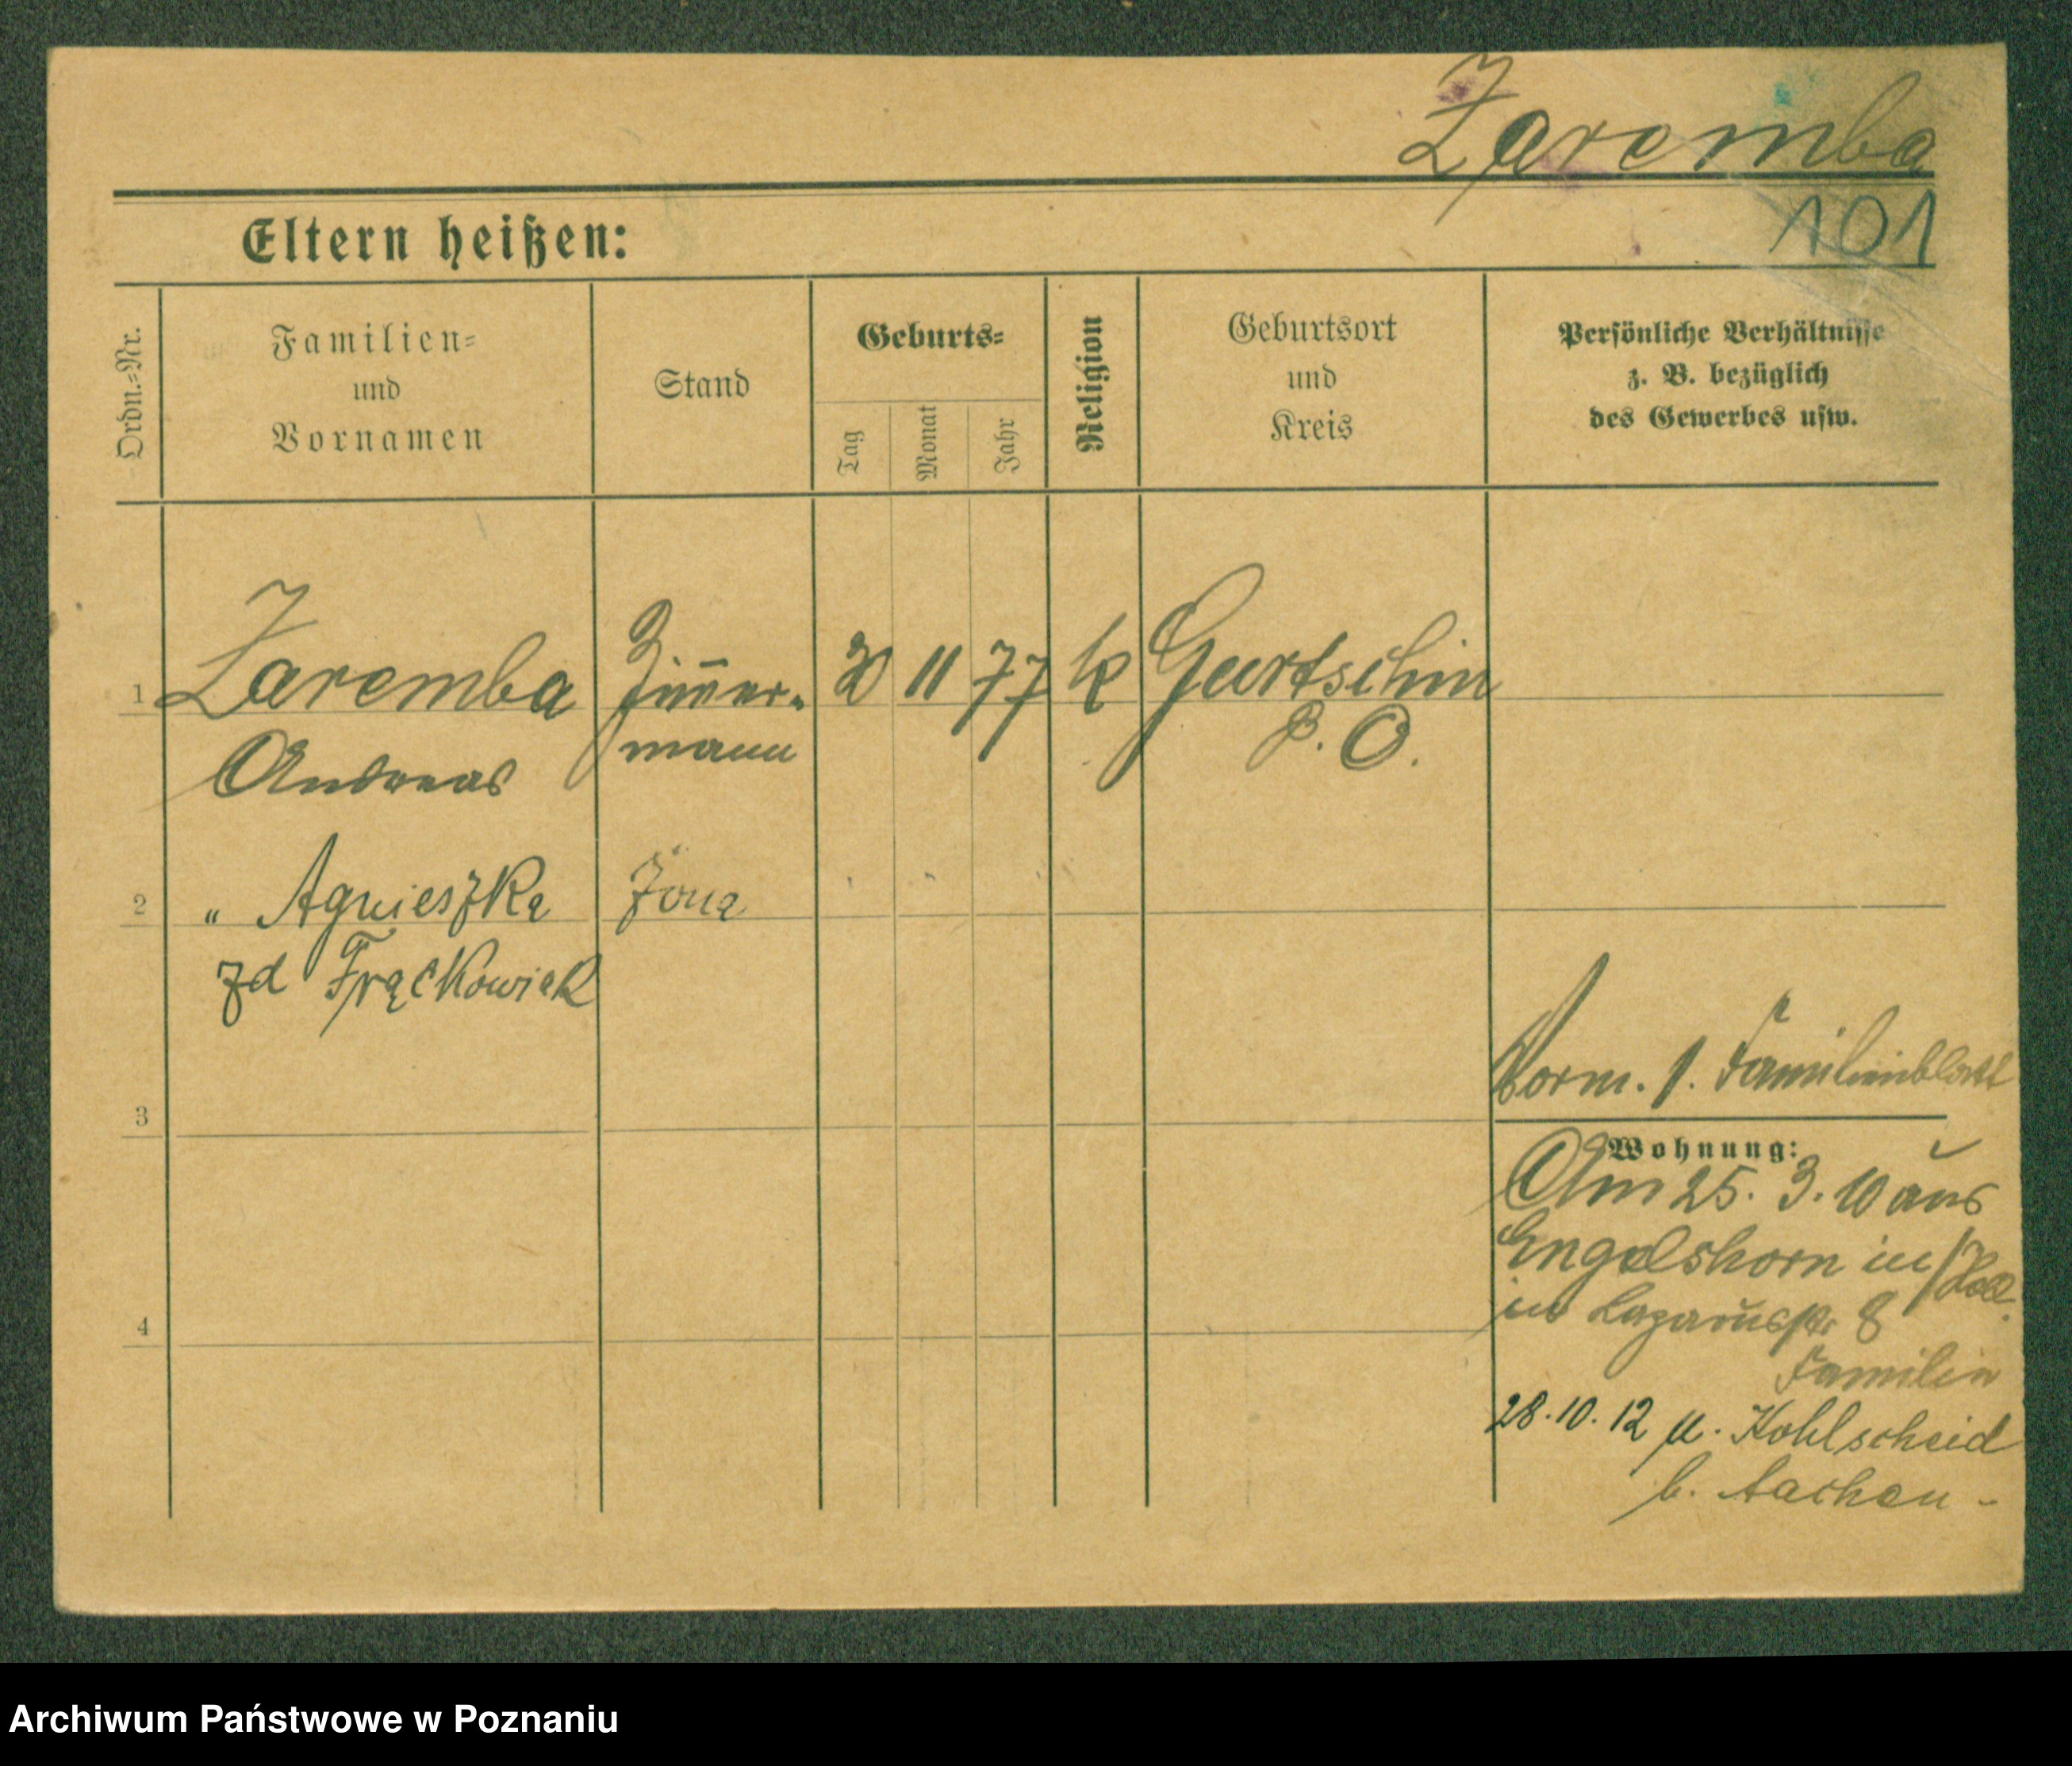 Zaremba
101
Eltern heißen:
Ordn.-Nr.
Familien-
und
Vornamen
Stand
Geburts-
Tag
Monat
Jahr
Religion
Geburtsort
und
Kreis
Persönliche Verhältnisse
z. B. bezüglich
des Gewerbes usw.
1 Zaremba Zimmer- 20 11 77 k Gurtschin
Andreas mann P. O.
2 " Agnieszka żona
zd Frąckowiak
3
Vorm. s. Familienblatt
Wohnung:
Am 25. 3. 10 aus
Engelshorn in
Lazarusstr 8
4
Familie
28.10.12 n. Kohlscheid
b. Aachen -
Archiwum Państwowe w Poznaniu